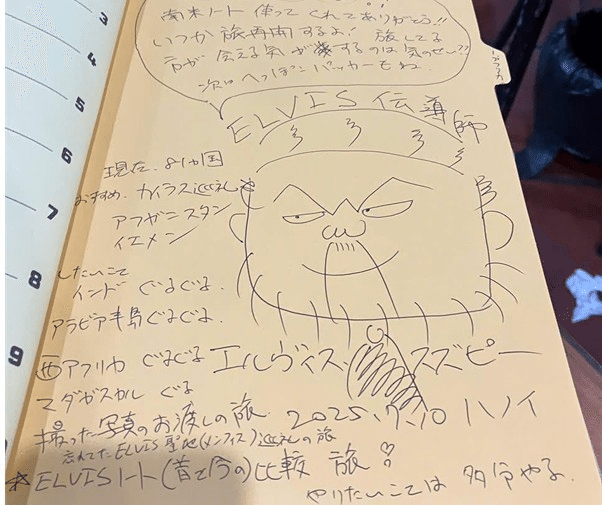 南米ノート使ってくれてありがとう!!
いつか旅再開するよ! 旅してる
方が会える気がするのは気のせい??
次はへっぽこパッカーもね
ELVIS伝導師
3
4
5
6
7
8
9
現在、81ヵ国
おすすめ、カイラス巡礼
アフガニスタン
イエメン
したいこと
インド ぐるぐる
アラビア半島ぐるぐる
西アフリカ ぐるぐる
マダガスカル ぐる
エルヴィス スズピー
撮った写真のお渡しの旅
2025.7.10 ハノイ
忘れてたELVIS聖地(メンフィス)巡礼の旅
☆ELVISノート(昔と今の)比較 旅♡
やりたいことは 多分やる